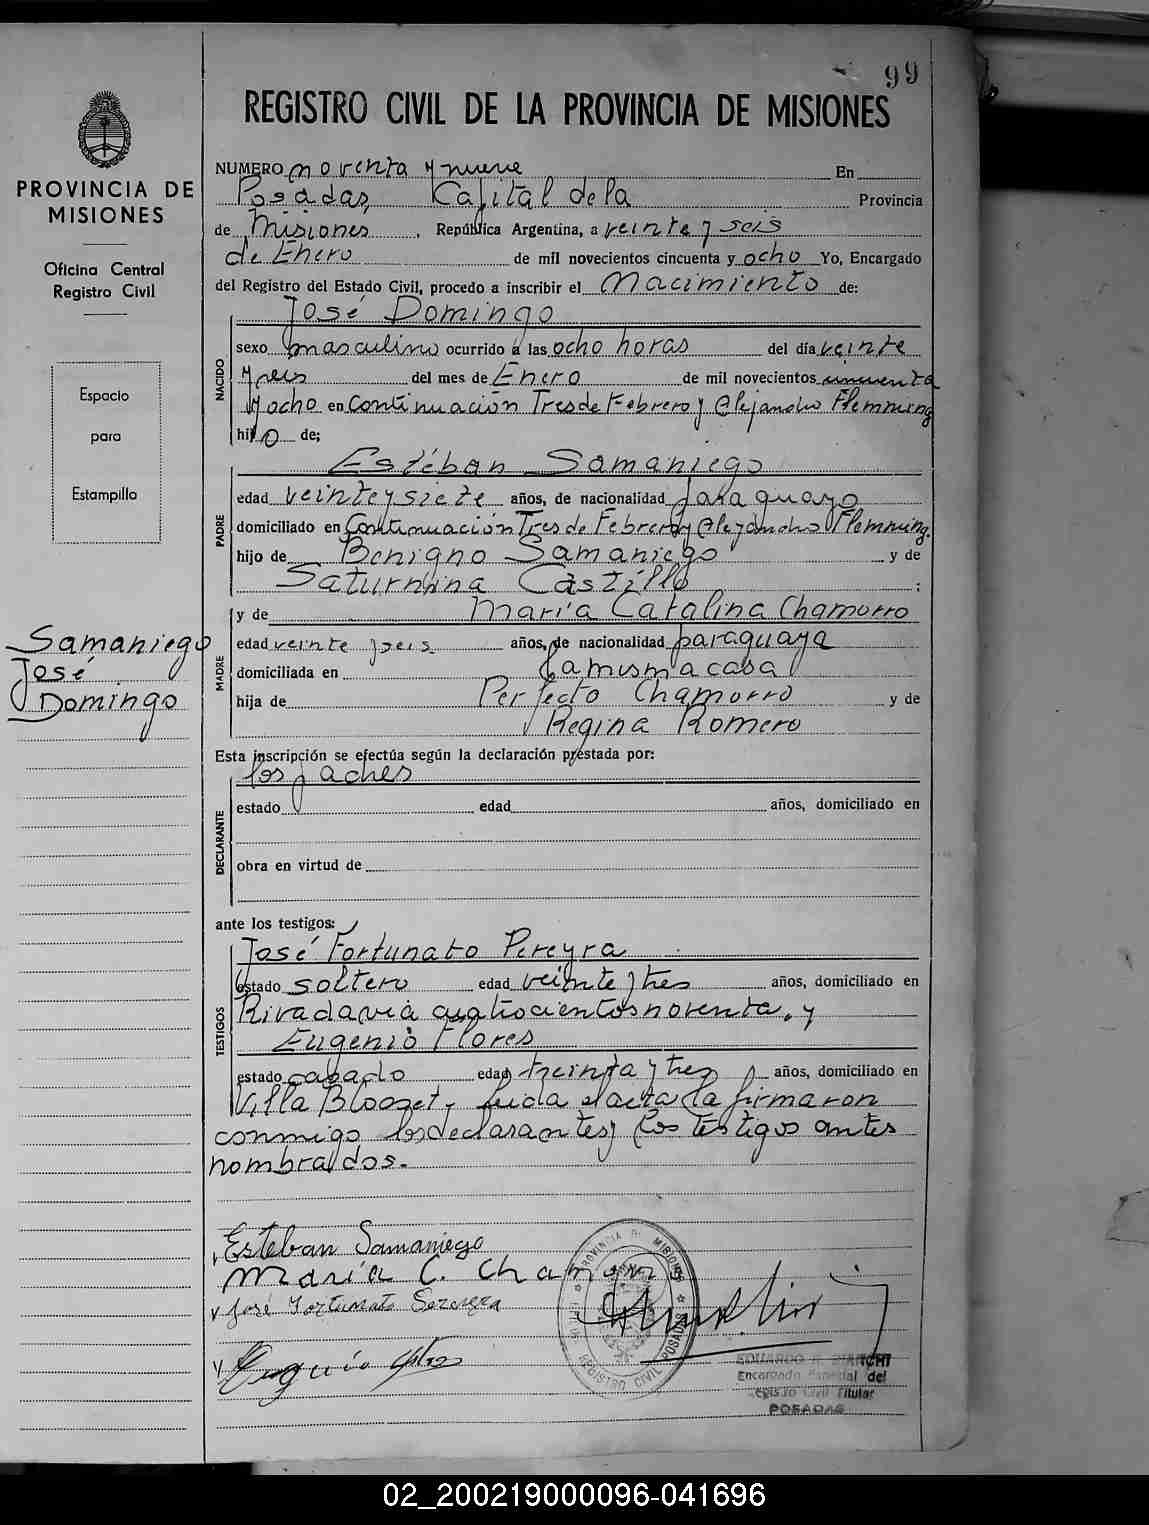 99
REGISTRO CIVIL DE LA PROVINCIA DE MISIONES
PROVINCIA DE
MISIONES
Oficina Central
Registro Civil
Espacio
para
Estampilla
Samaniego
José
Domingo
NUMERO noventa y nueve En
Posadas, Capital de la Provincia
de Misiones, República Argentina, a veinte y seis
de Enero de mil novecientos cincuenta y ocho Yo, Encargado
del Registro del Estado Civil, procedo a inscribir el Nacimiento de:
José Domingo
NACIDO
sexo masculino ocurrido a las ocho horas del día veinte
y seis del mes de Enero de mil novecientos cincuenta
y ocho en Continuación Tres de Febrero y Alejandro Flemming
hijo de;
Estéban Samaniego
PADRE
edad veinte y siete años, de nacionalidad paraguayo
domiciliado en Continuación Tres de Febrero y Alejandro Flemming.
hijo de Benigno Samaniego y de
Saturnina Castillo ;
y de María Catalina Chamorro
MADRE
edad veinte y seis años, de nacionalidad paraguaya
domiciliada en la misma casa
hija de Perfecto Chamorro y de
Regina Romero
Esta inscripción se efectúa según la declaración prestada por:
los padres
DECLARANTE
estado edad años, domiciliado en
obra en virtud de
ante los testigos:
José Fortunato Pereyra
TESTIGOS
estado soltero edad veinte y tres años, domiciliado en
Rivadavia cuatrocientos noventa, y
Eugenio Flores
estado casado edad treinta y tres años, domiciliado en
Villa Blosset, leida el acta la firmaron
conmigo los declarantes y los testigos antes
nombrados.
Esteban Samaniego
María C. Chamorro
José Fortunato
PROVINCIA DE MISIONES
REGISTRO CIVIL POSADAS
EDUARDO R. BIANCHI
Encargado Especial del
Registro Civil Titular
POSADAS
02_200219000096-041696